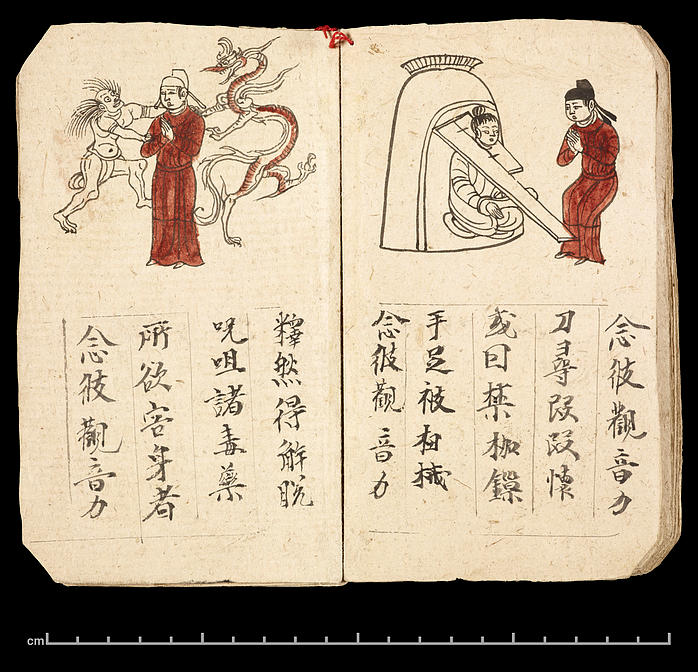 念彼觀音力
刀尋段段懷
或囚禁枷鏁
手足被杻械
念彼觀音力
釋然得解脱
呪咀諸毒藥
所欲害身者
念彼觀音力
cm